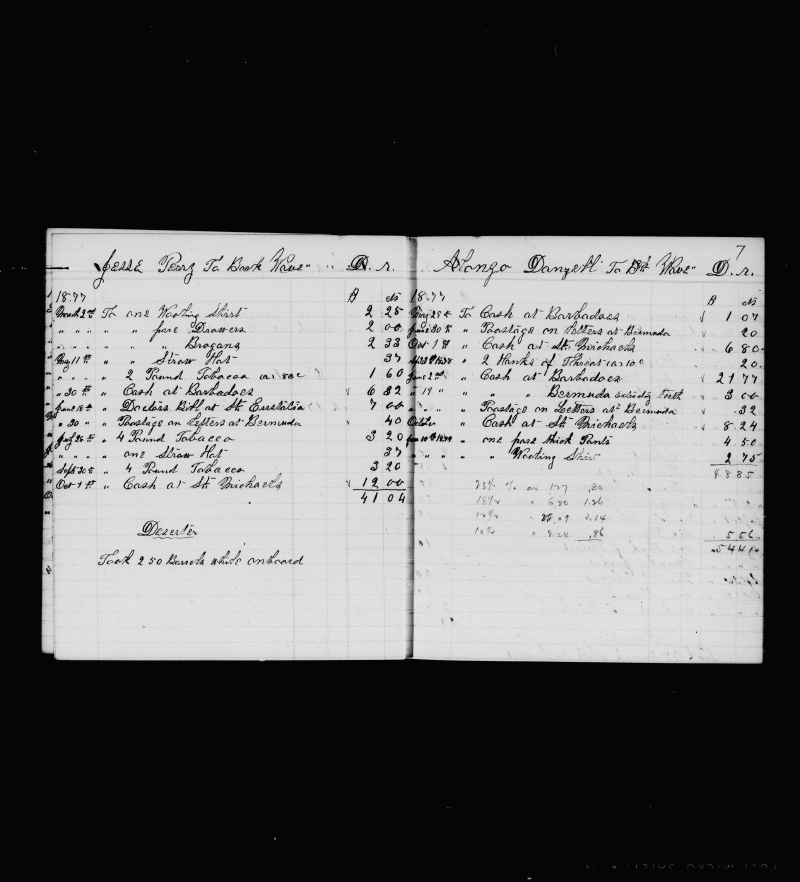 Jesse Perry To Bark Wave" D.r.
1877 $ cts
March 2nd To one Wooling Shirt 2 25
" " " " " pare Drawers 2 00
" " " " " " Brogans 2 33
May 11th " " Straw Hat 37
" " " " 2 Pound Tobacco (a) 80c 1 60
" 30th " Cash at Barbadoes √ 6 32
June 18th " Doctors Bill at St. Eustatia 7 00
" 30 " " Postage on Letters at Bermuda √ 40
July 26th " 4 Pound Tobacco 3 20
" " " one Straw Hat 37
Sept 30th " 4 Pound Tobacco 3 20
Oct 1st " Cash at St. Michaels √ 12 00
41 04
Deserter
Took 250 Barrels while onboard
7
Alonzo Danzell To Bk Wave" D.r.
1877 $ cts
May 25th To Cash at Barbadoes √ 1 07
June 30th " Postage on Letters at Bermuda √ 20
Oct 1st " Cash at St. Michaels √ 6 80
1878 " 2 Hanks of Threat (a) 10c 20
June 2nd " Cash at Barbadoes √ 21 77
" 19 " " " " Bermuda teeth √ 3 00
" " " Postage on Letters at Bermuda √ 32
October " Cash at St. Michaels √ 8 24
1879 " one pare thick Pants 4 50
" " " " Wooling Shirt 2 75
48 85
23½ % on 127 .30
18½ " 6.80 1.26
" 2.14
10½ " 8.24 .86
5 56
54 41